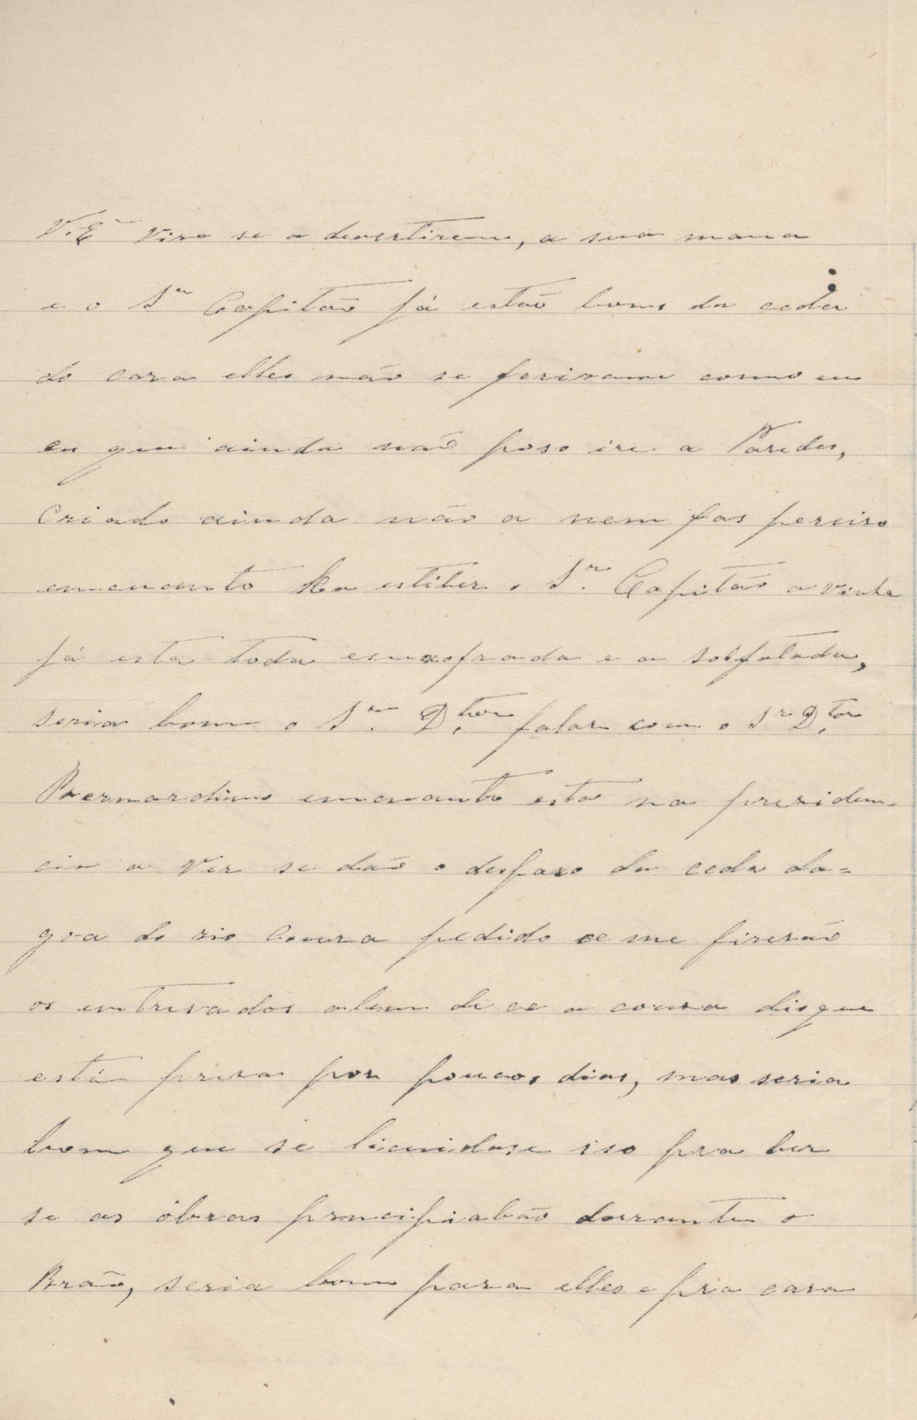 V. Eª viro se a devertirem, a sua mana
e o Snr Capitão já estão bons da ceda
do cara elles não se feriram como eu
eu que ainda não poso ire a Paredes,
Criado ainda não a nem fas perciso
emcuanto ka estiber o Snr. Capitão a vinha
já esta toda emxofrada e a solfatada,
seria bom o Snr. Dtor falar com o Snr Dtor
Bernardino emcuanto esta na preziden-
cia a ver se dão o despaxo da ceda da=
goa do rio Coura pedido ce me fizerão
os entrevados alem de ce a couza disque
está preza por poucos dias, mas seria
bom que se licuidase iso pra ber
se as óbras principiabão durrante o
Brão, seria bom para elles e pria caza